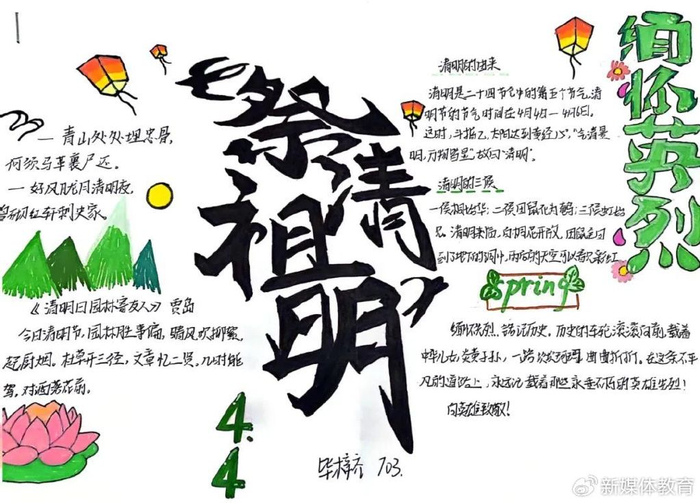 一 青山处处埋忠骨，
何须马革裹尸还。
一 好风胧月清明夜，
碧砌红轩刺史家。
《清明日园林寄友人》 贾岛
今日清明节，园林胜事偏。晴风吹柳絮，
起厨烟。杜草开三径，文章忆二贤。几时能
驾，对酒落花前。
4.4
祭清
祖明
毕梓 703.
清明的由来
清明是二十四节气中的第五个节气，清
明节的节气时间在4月4日—4月6日。
这时，斗指乙，太阳达到黄经15°。
明，万物皆显"故曰"清明"。
清明的三候
一候桐始华；二候田鼠化为鹌；三候虹始
见。清明来临，白桐花开放，
spring
缅怀先烈，铭记历史。历史的车轮滚滚向前，载着
中华儿女，炎黄子孙，一路
凡的道路上，永远记载着那些永垂不朽的英雄先烈！
向英雄致敬！
缅怀英烈
@新媒体教育